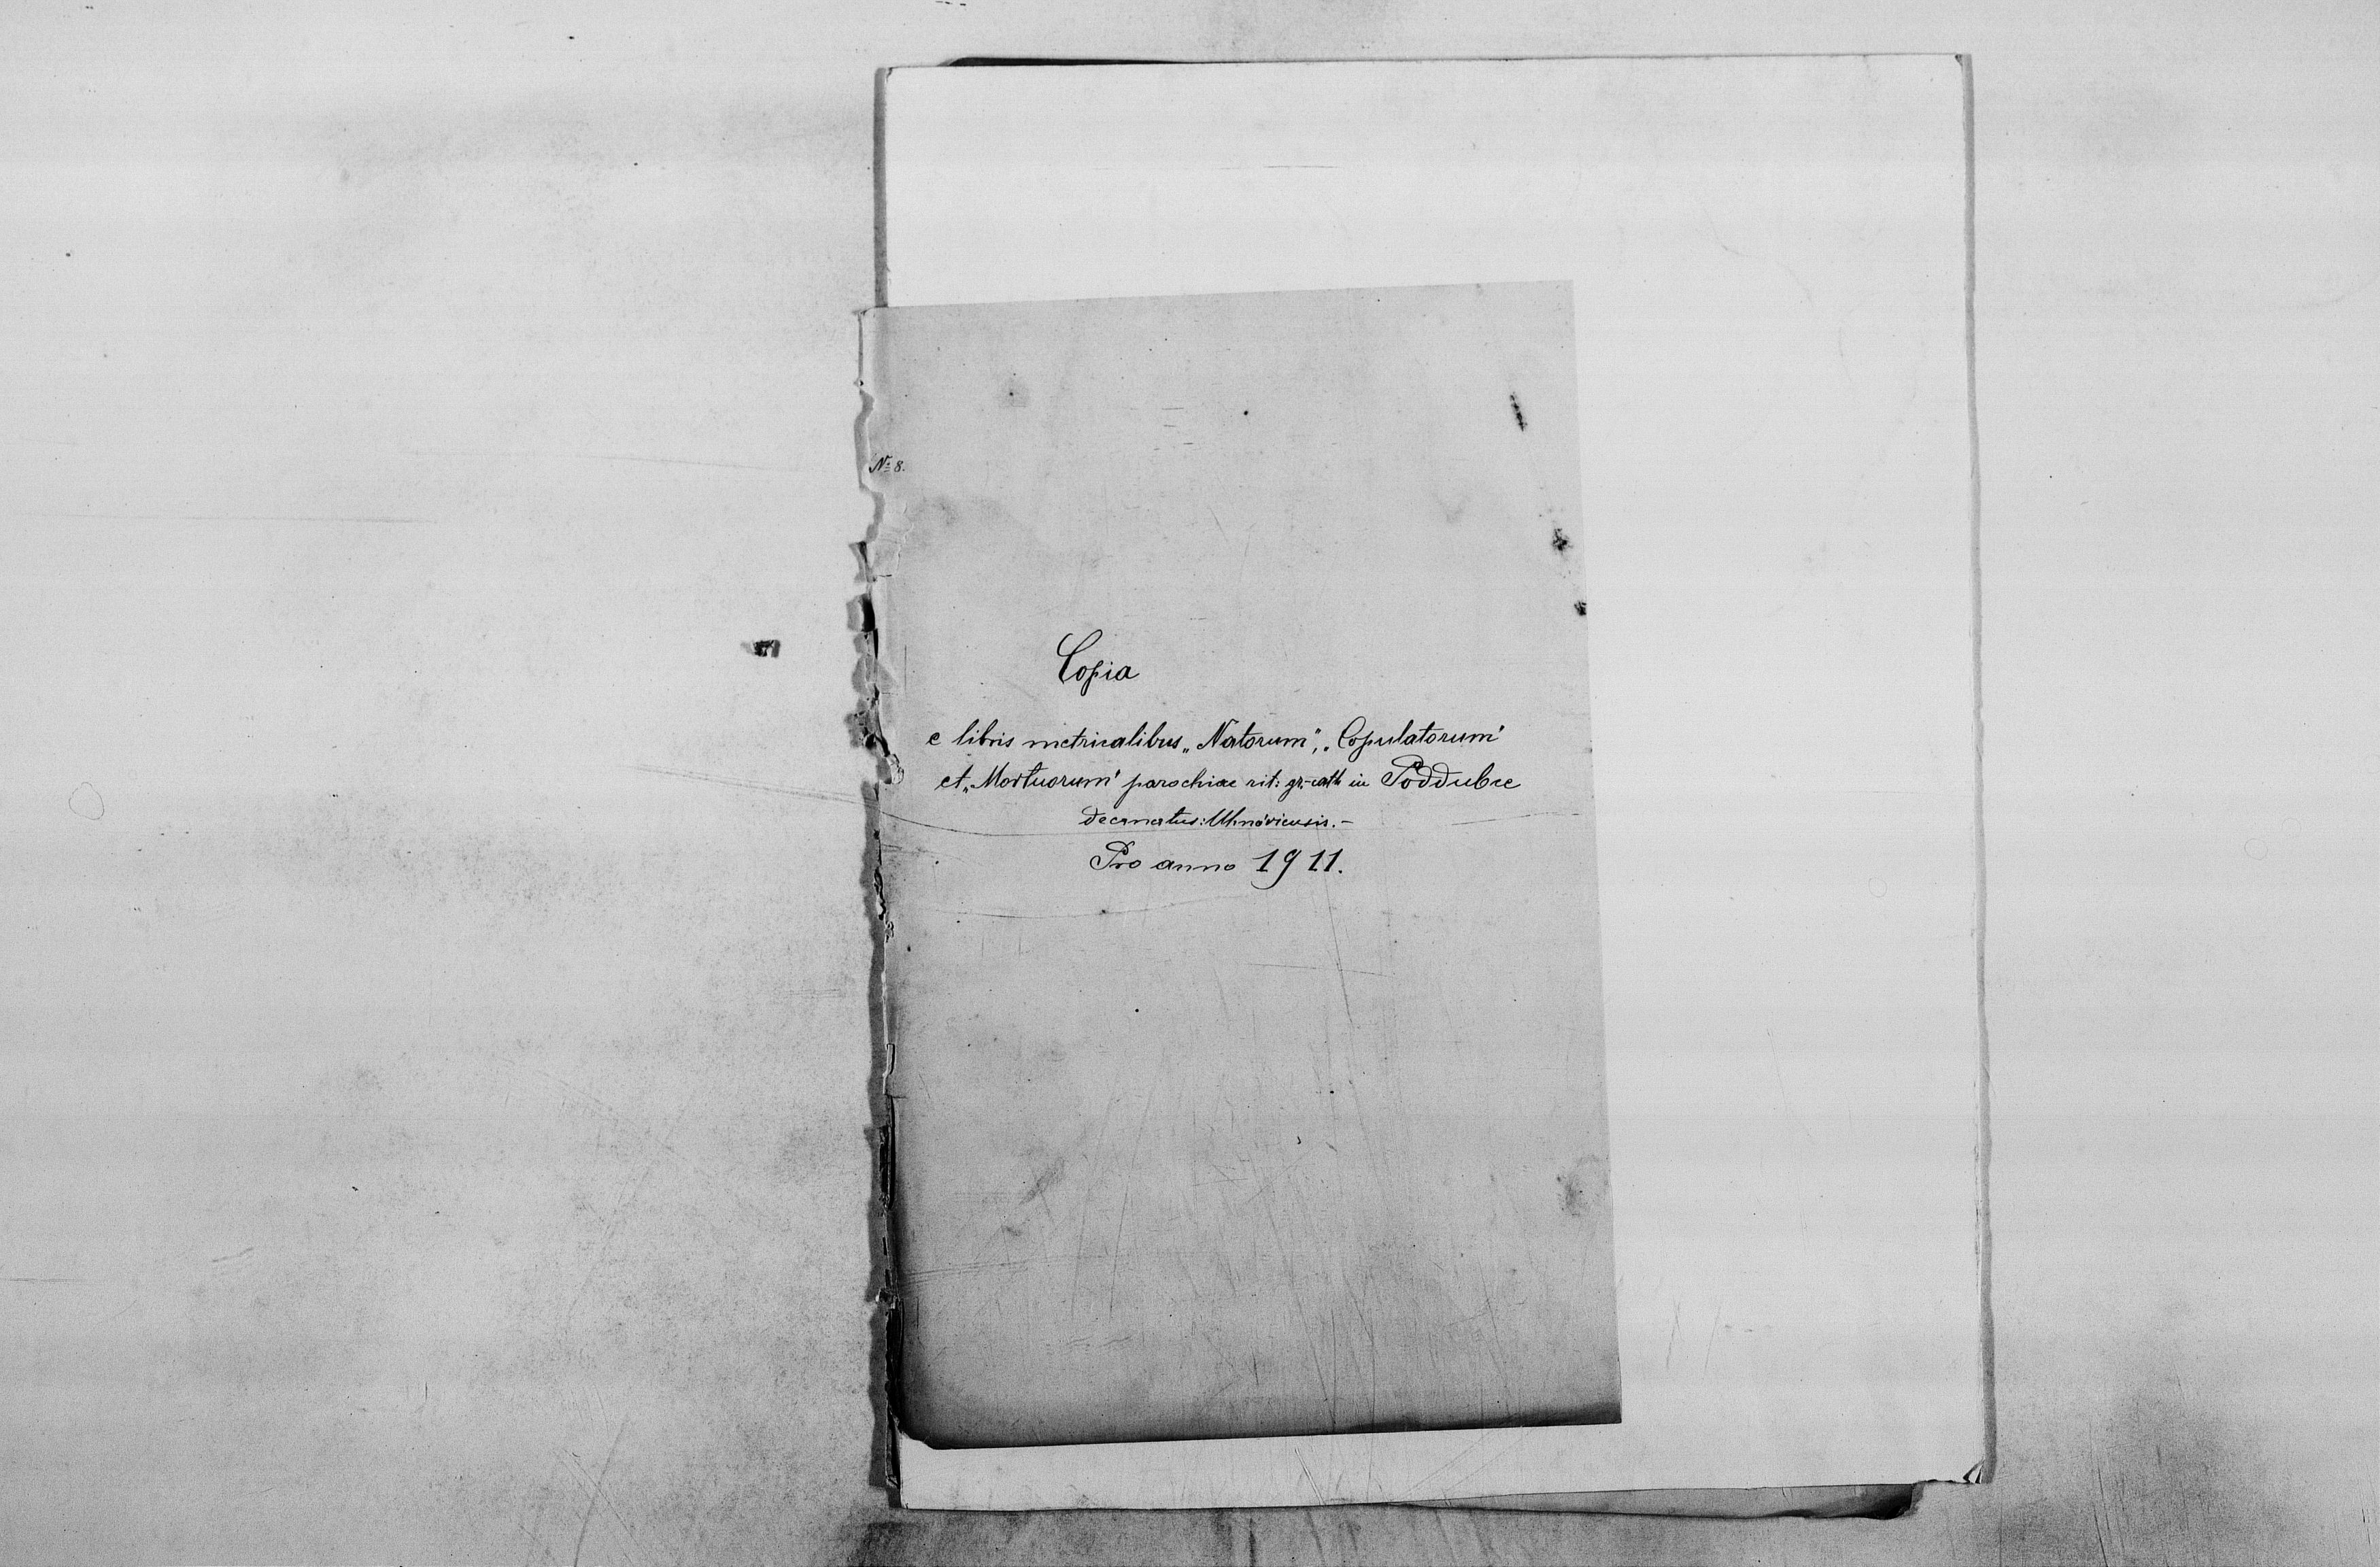 № 8.
Copia
e libris metricalibus „Natorum", „Copulatorum"
et „Mortuorum" parochiae rit: gr.-cath in Poddubce
decanatus: Uhnoviensis.-
Pro anno 1911.